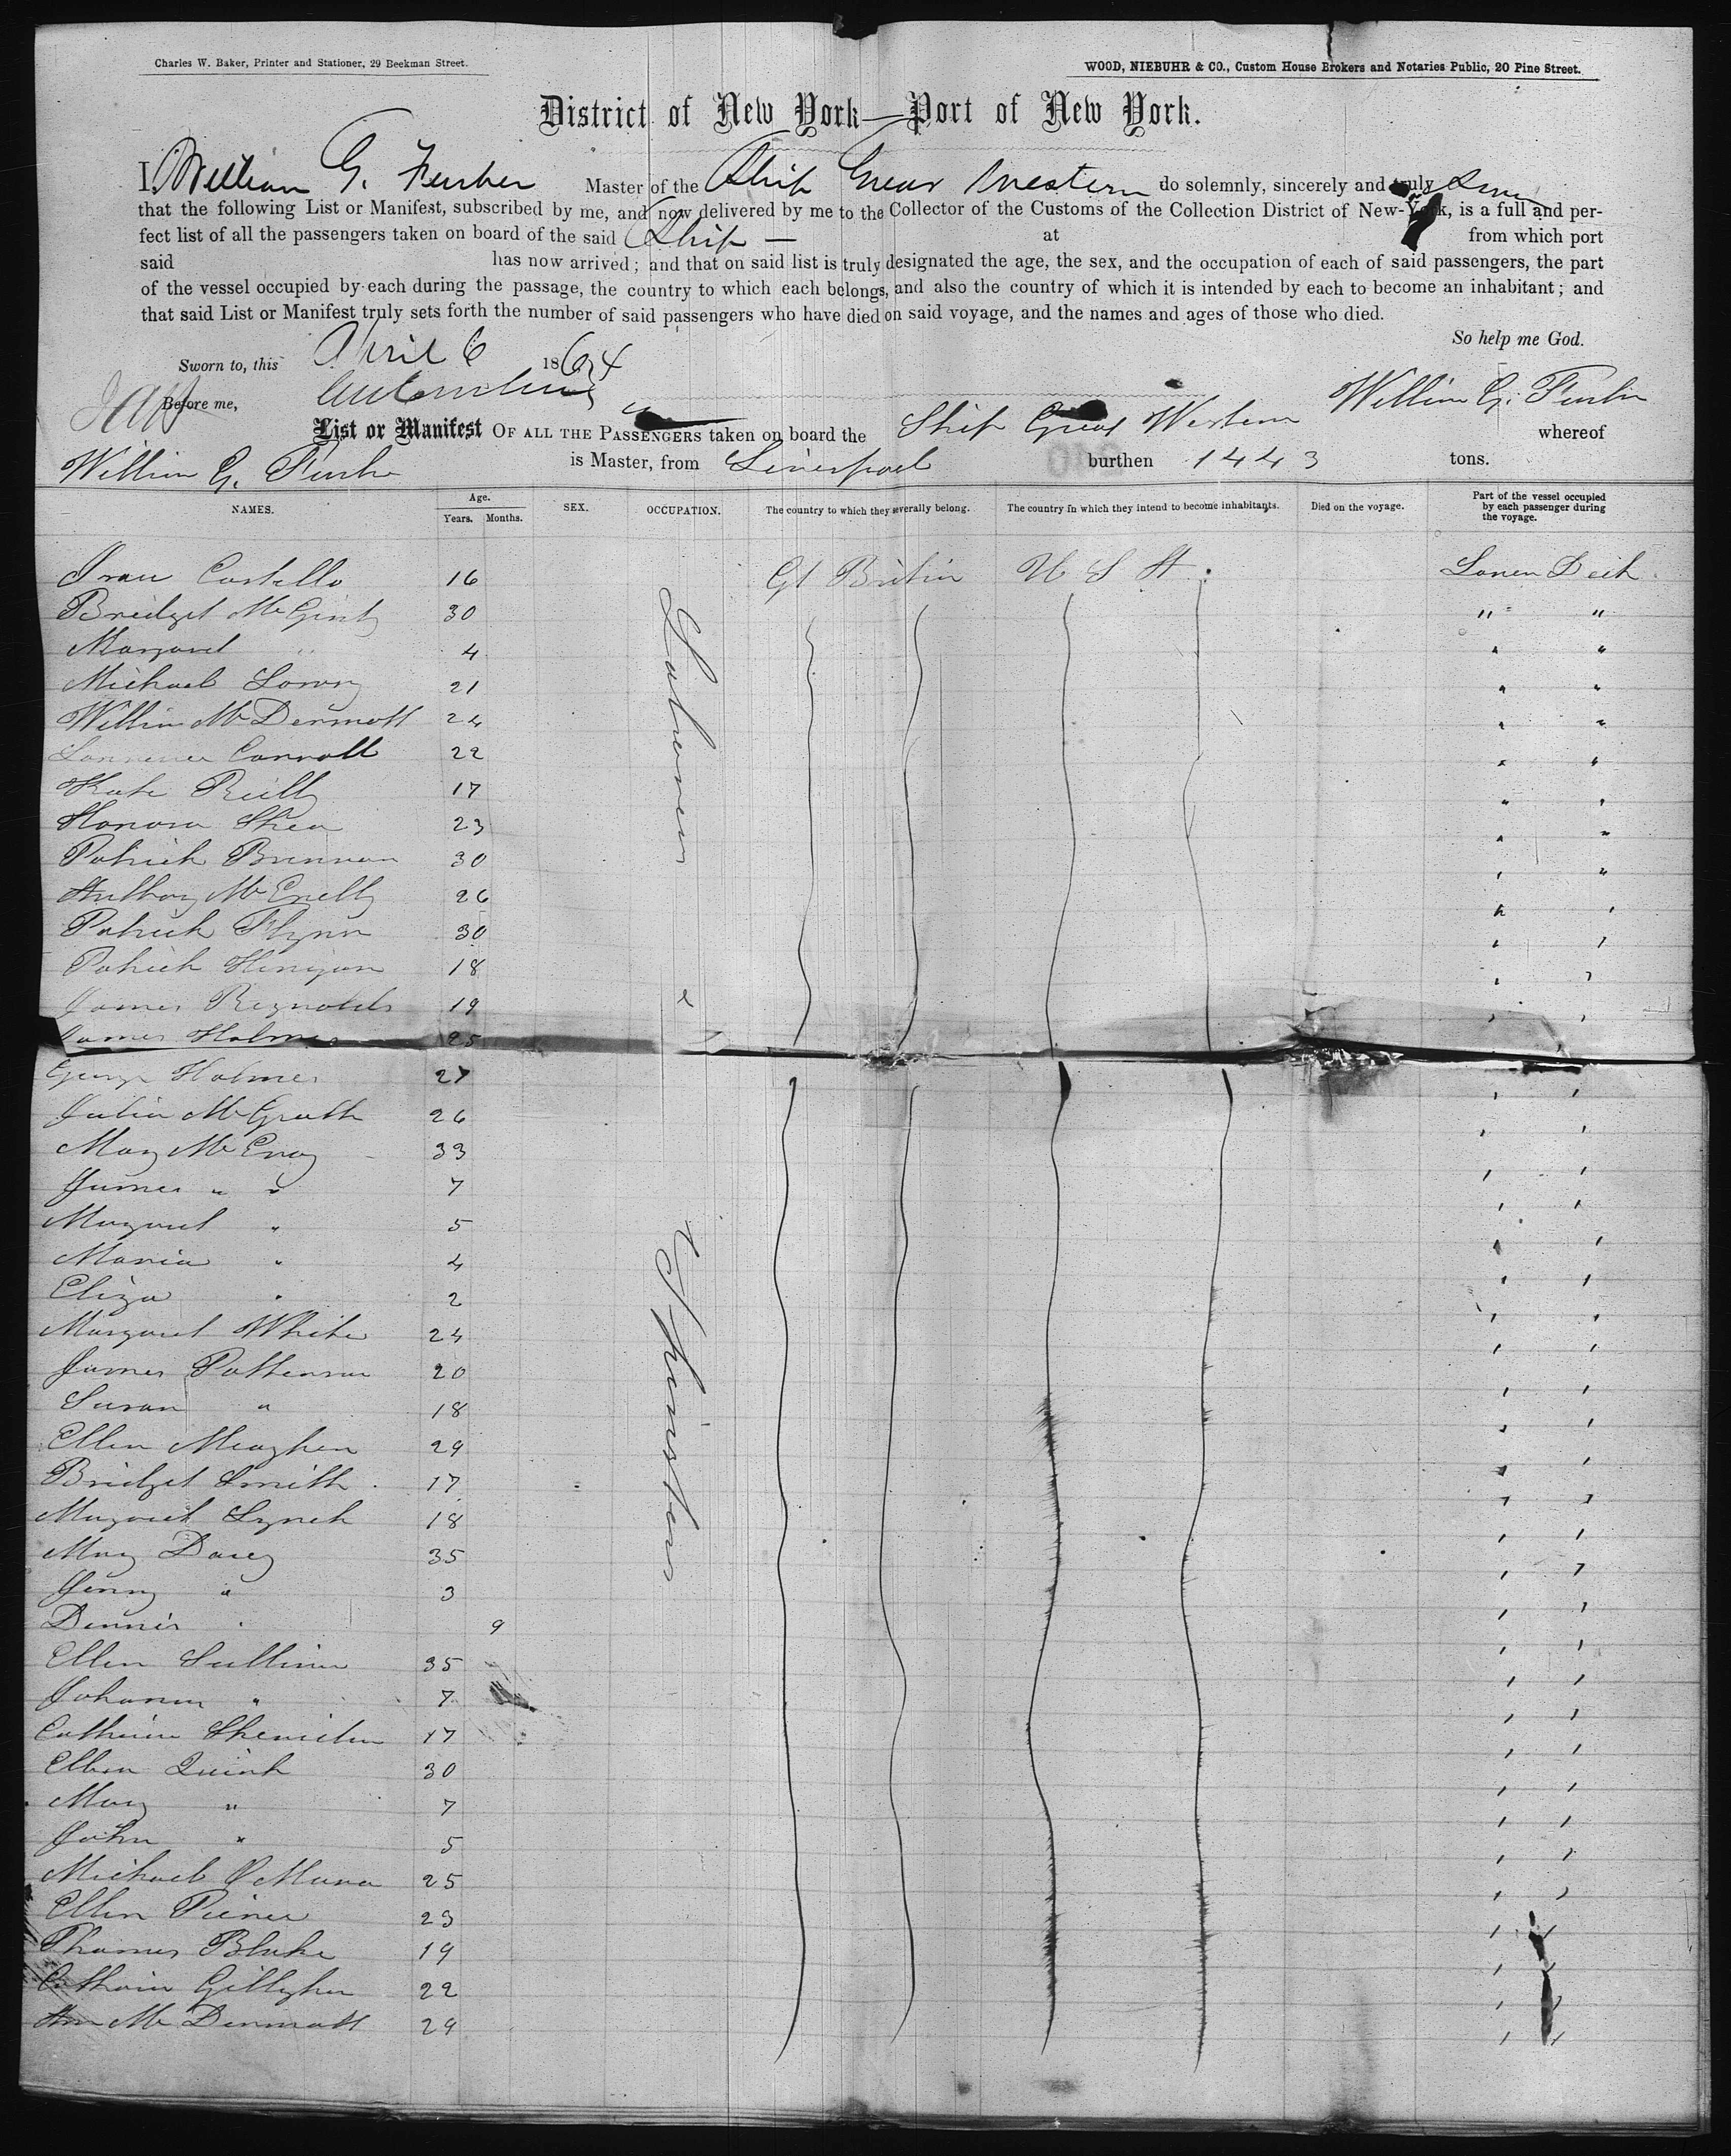 Charles W. Baker, Printer and Stationer, 29 Beekman Street.
WOOD, NIEBUHR & CO., Custom House Brokers and Notaries Public, 20 Pine Street.
District of New York—Port of New York.
I, William G. Furber Master of the Ship Great Western do solemnly, sincerely and truly
that the following List or Manifest, subscribed by me, and now delivered by me to the Collector of the Customs of the Collection District of New-York, is a full and per-
fect list of all the passengers taken on board of the said Ship — at from which port
said has now arrived; and that on said list is truly designated the age, the sex, and the occupation of each of said passengers, the part
of the vessel occupied by each during the passage, the country to which each belongs, and also the country of which it is intended by each to become an inhabitant; and
that said List or Manifest truly sets forth the number of said passengers who have died on said voyage, and the names and ages of those who died.
So help me God.
Sworn to, this April 6 1864
Before me,
William G. Furber
List or Manifest OF ALL THE PASSENGERS taken on board the Ship Great Western whereof
William G. Furber is Master, from Liverpool burthen 1443 tons.
NAMES. Age. Years. Months. SEX. OCCUPATION. The country to which they severally belong. The country in which they intend to become inhabitants. Died on the voyage. Part of the vessel occupied by each passenger during the voyage.
Costello 16 Gt Britin U S A Lower Deck
Bridget McGinty 30 " "
Margaret " 4 " "
Michael Lowry 21 " "
William McDermott 24 " "
Lawrence Carroll 22 " "
Kate Reilly 17 " "
Honora Shea 23 " "
Patrick Brennan 30 " "
Anthony McEnelly 26 " "
Patrick Flynn 30 " "
Patrick Hinigan 18 " "
James Reynolds 19 " "
James Holmes 25 " "
George Holmes 27 " "
Julia McGrath 26 " "
Mary McEvoy 33 " "
James " " 7 " "
Margaret " 5 " "
Maria " 4 " "
Eliza " 2 " "
Margaret White 24 " "
James Patterson 20 " "
Susan " 18 " "
Ellen Meagher 29 " "
Bridget Smith 17 " "
Margaret Lynch 18 " "
Mary Darcy 35 " "
Jenny " 3 " "
Dennis " 9 " "
Ellen Sullivan 35 " "
Johanna " 7 " "
Catherine Sheridan 17 " "
Ellen Quink 30 " "
Mary " 7 " "
John " 5 " "
Michael OMara 25 " "
Ellen Pierce 23 " "
Thomas Blake 19 " "
Catharin Gillighen 22 " "
Ann McDermott 29 " "
Labourers
Spinsters